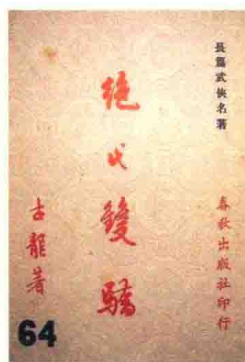 長篇武俠名著
絕代雙驕
古龍著
春秋出版社印行
64